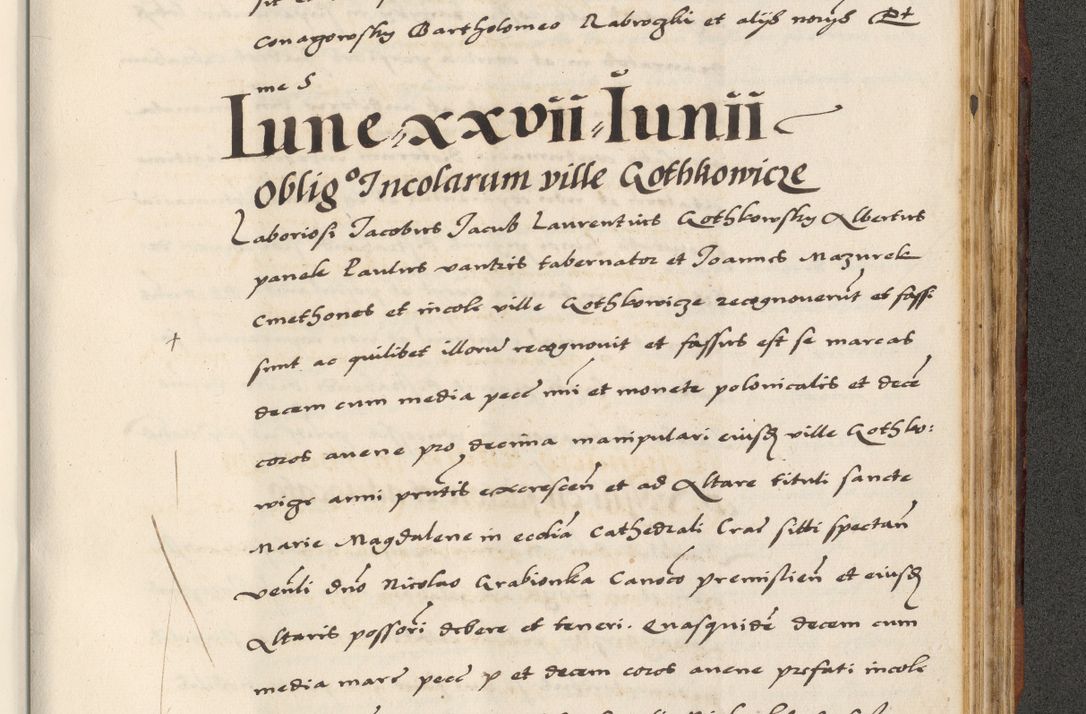 Conagowsky Bartholomeo Zabroczki et alijs novijs Pt
me S
Lune xxvii Iunii
Oblig⁰ Incolarum ville Gothkowicze
Laboriosi Jacobus Jacub Laurentius Gothkowsky Albertus
panek Paulus vantzis tabernator et Joannes Mazurek
Cmethones et incole ville Gothkowicze recognoverūt et fassi
sunt ac quilibet illorū recognovit et fassus est se marcas
decem cum media pecē nūi et monete polonicalis et decē
coros avene pro decima manipulari eiusdꝫ ville Gothko:
wicze anni prntis excrescen̄ et ad Altare tituli sancte
Marie Magdalene in ecclia Cathedrali Crac̄ sitti spectan̄
venli dno Nicolao Grabionka Canoco premislien̄ et eiusdꝫ
Altaris possori debere et teneri. Quasquidē decem cum
media marc̄ pecē p et decem coros avene prefati incole